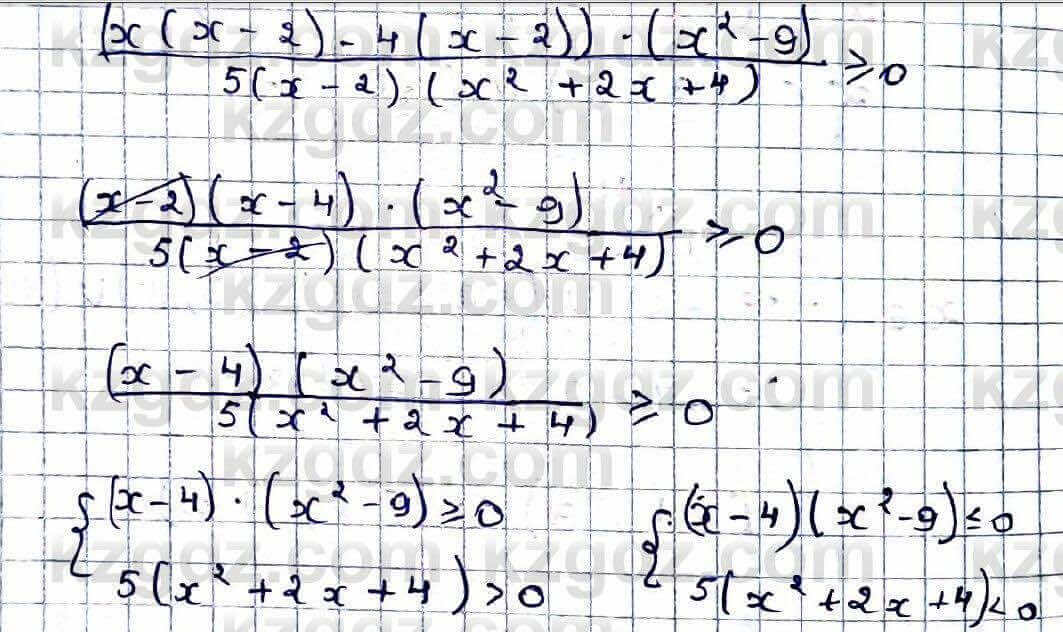 (x(x-2)-4(x-2))·(x²-9)/5(x-2)(x²+2x+4) ≥ 0
(x-2)(x-4)·(x²-9)/5(x-2)(x²+2x+4) ≥ 0
(x-4)(x²-9)/5(x²+2x+4) ≥ 0
{(x-4)·(x²-9) ≥ 0 {(x-4)(x²-9) ≤ 0
5(x²+2x+4) > 0 5(x²+2x+4) < 0
kzgdz.com